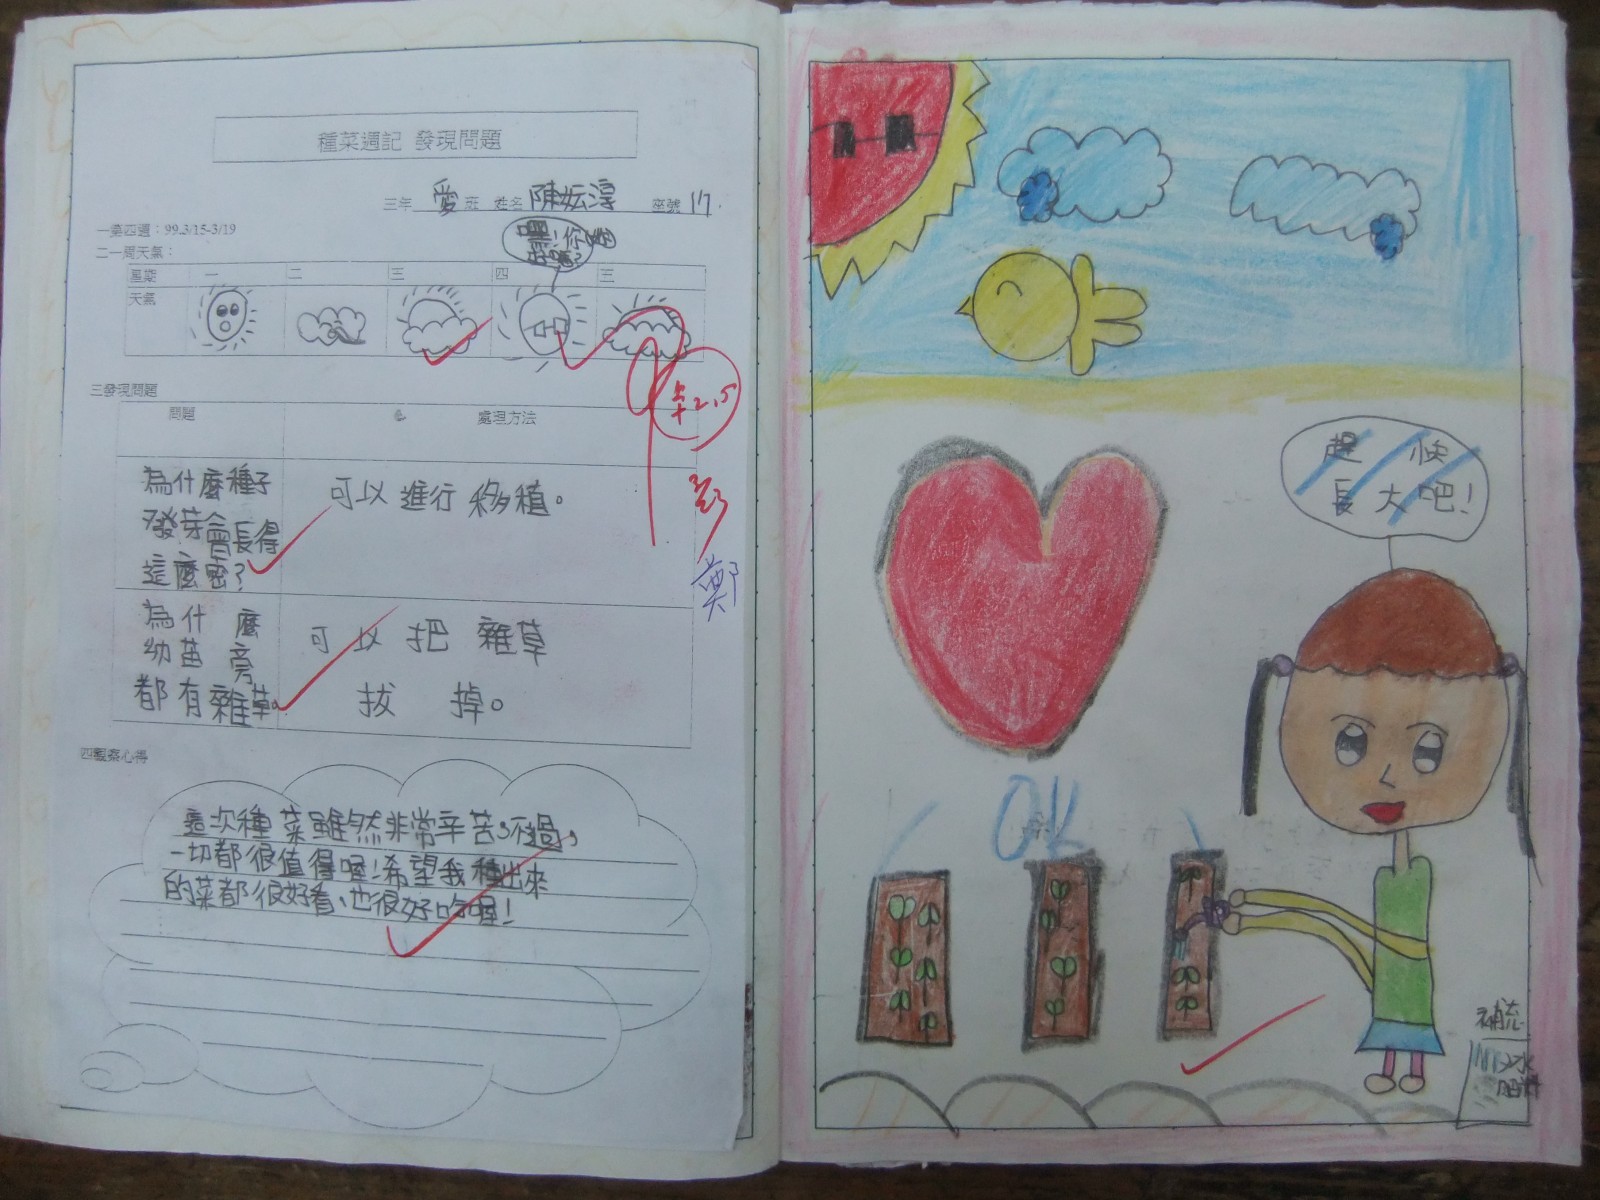 種菜週記 發現問題
三年 愛 班 姓名 陳妘淳 座號 17
一第四週：99.3/15-3/19
二一周天氣：
嘿！你
好嗎？
星期 一 二 三 四 三
天氣
三發現問題
問題 處理方法
為什麼種子
發芽會長得
這麼密？
可以進行移植。
為什麼
幼苗旁
都有雜草。
可以把雜草
拔掉。
+2.5
鄭
四觀察心得
這次種菜雖然非常辛苦，不過，
一切都很值得喔！希望我種出來
的菜都很好看、也很好吃喔！
趕快
長大吧！
OK
補充
水